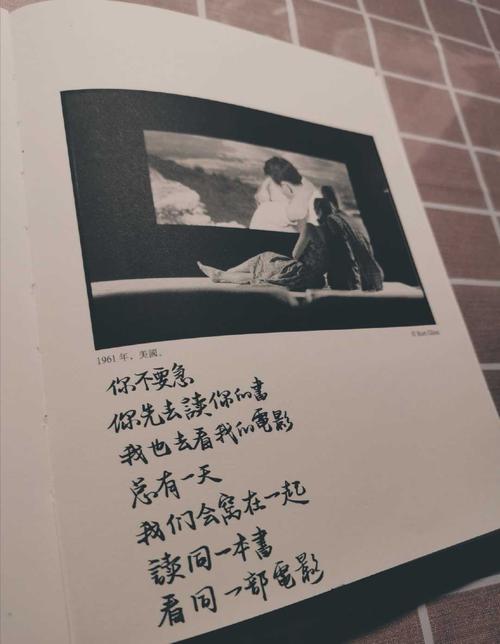 © Burt Glinn
1961 年，美國。
你不要急
你先去讀你的書
我也去看我的電影
总有一天
我们会窝在一起
讀同一本書
看同一部電影